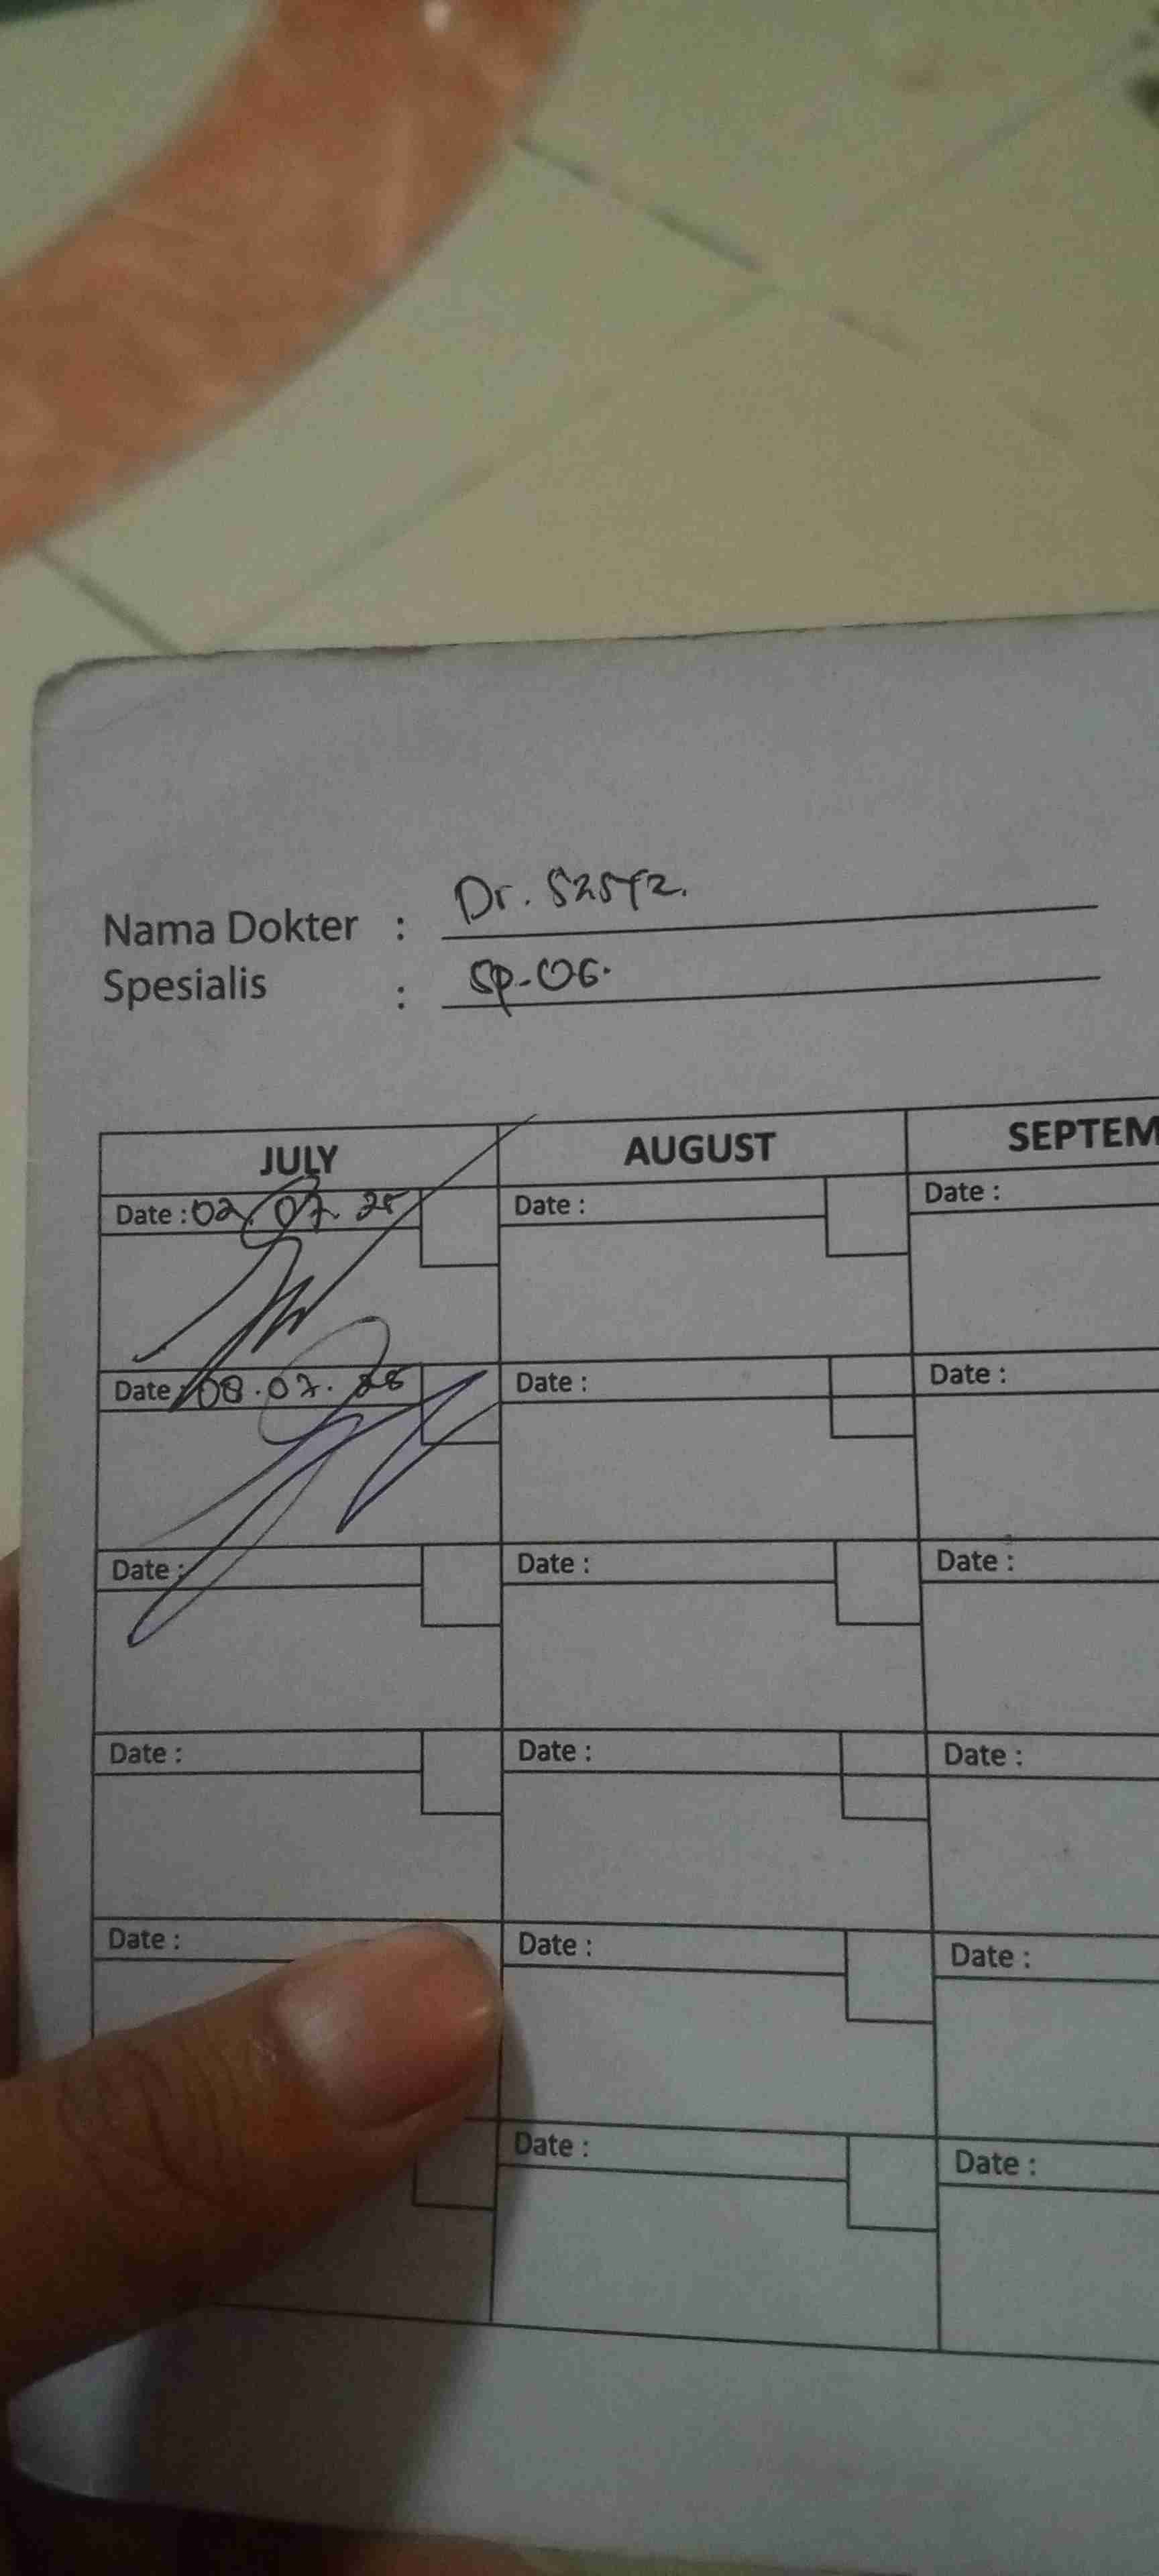 Nama Dokter : Dr. Sasya.
Spesialis : Sp-OG.
JULY AUGUST SEPTEM
Date : 02.07.25 Date : Date :
Date : 08.07.25 Date : Date :
Date : Date : Date :
Date : Date : Date :
Date : Date : Date :
Date : Date :